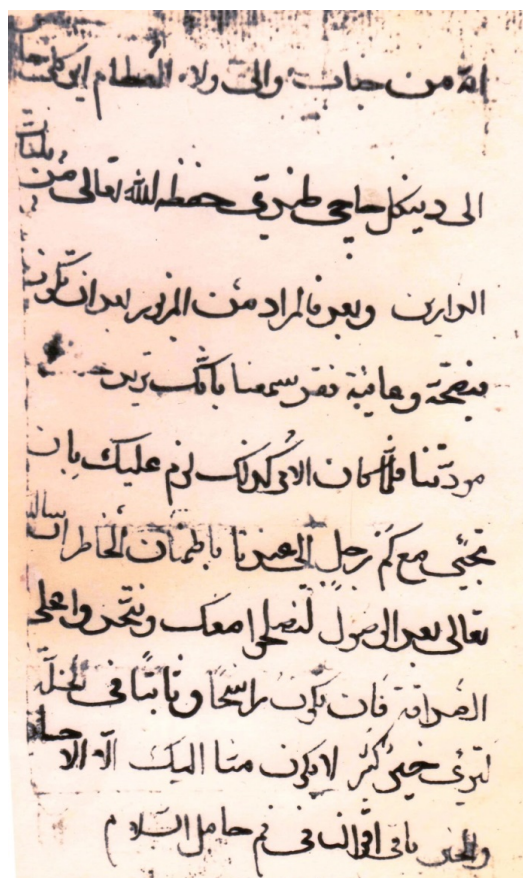 انه من جناب والى ولاة العظام
الى دينكل حاجي حفظه الله تعالى من
الدارين وبعد فالمراد من المزبور بعد ان تكون
بصحة وعافية فقد سمعنا بانك تريد
مودتنا فلما كان الامر كذلك لزم عليك بان
تجئي مع كم رجل الى عندنا باطمئنان الخاطر ان شاء الله
تعالى بعد الوصول لنصلحوا معك ونتحد واعلى
الصداقة فان تكون راسخا وثابتا في
لترى خير كثير لا يكون منا اليك الا الا
والخير باقي اقوالنا في فم حامل السلام